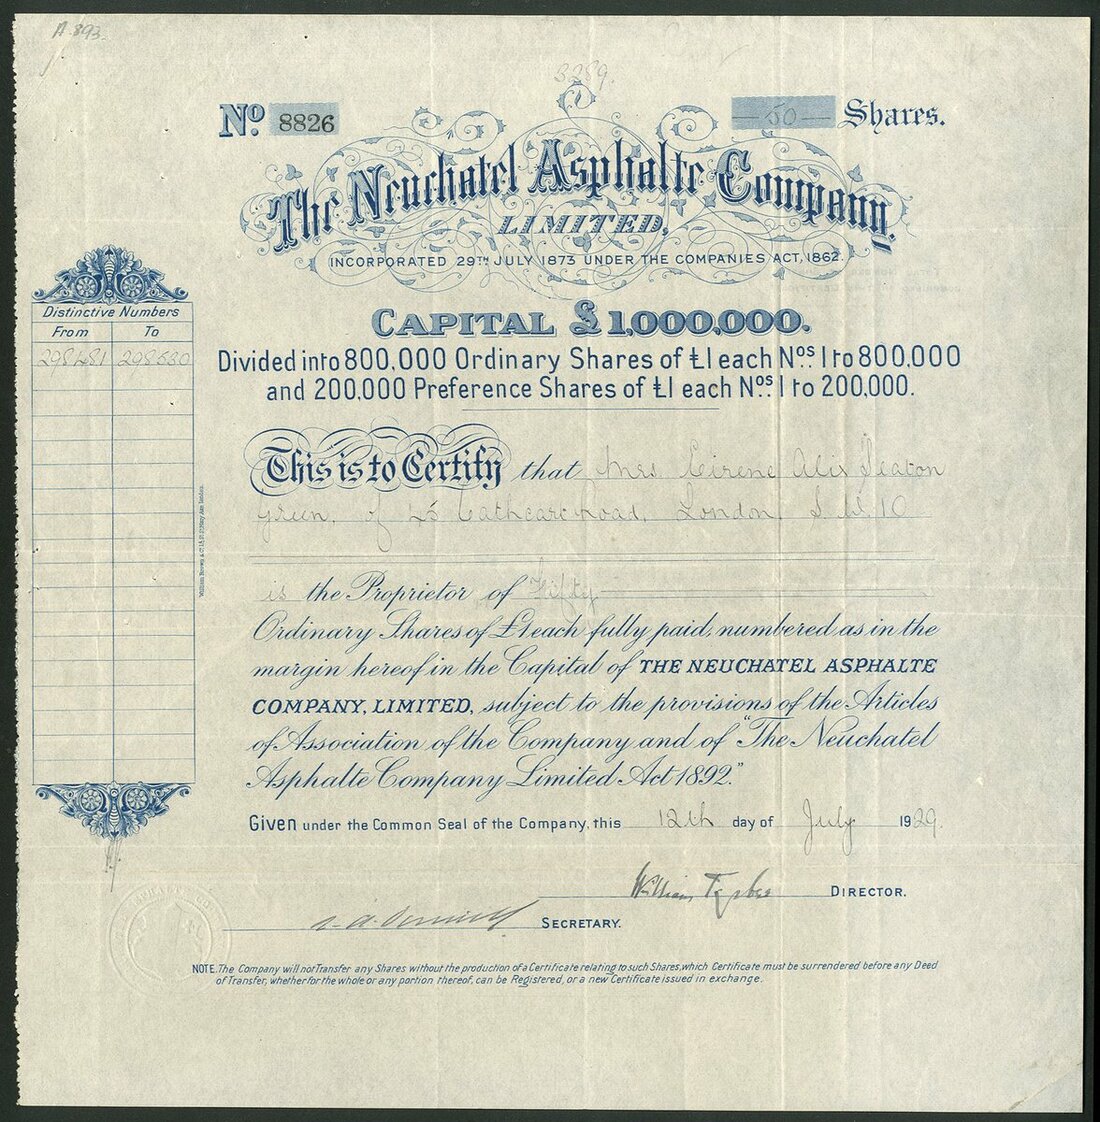 A 893.
3289.
No. 8826
50 Shares.
The Neuchatel Asphalte Company
LIMITED,
INCORPORATED 29TH JULY 1873 UNDER THE COMPANIES ACT, 1862.
CAPITAL £1,000,000.
Divided into 800,000 Ordinary Shares of £1 each Nos. 1 to 800,000
and 200,000 Preference Shares of £1 each Nos. 1 to 200,000.
Distinctive Numbers
From To
298481 298530
This is to Certify that Mrs. Eirene Alis Seaton
Green, of Cathcart Road, London, S.W.10
is the Proprietor of Fifty
Ordinary Shares of £1 each fully paid, numbered as in the
margin hereof in the Capital of THE NEUCHATEL ASPHALTE
COMPANY, LIMITED, subject to the provisions of the Articles
of Association of the Company and of "The Neuchatel
Asphalte Company Limited Act 1892."
Given under the Common Seal of the Company, this 12th day of July 1929.
William DIRECTOR.
SECRETARY.
NOTE. The Company will not Transfer any Shares without the production of a Certificate relating to such Shares, which Certificate must be surrendered before any Deed
of Transfer, whether for the whole or any portion thereof, can be Registered, or a new Certificate issued in exchange.